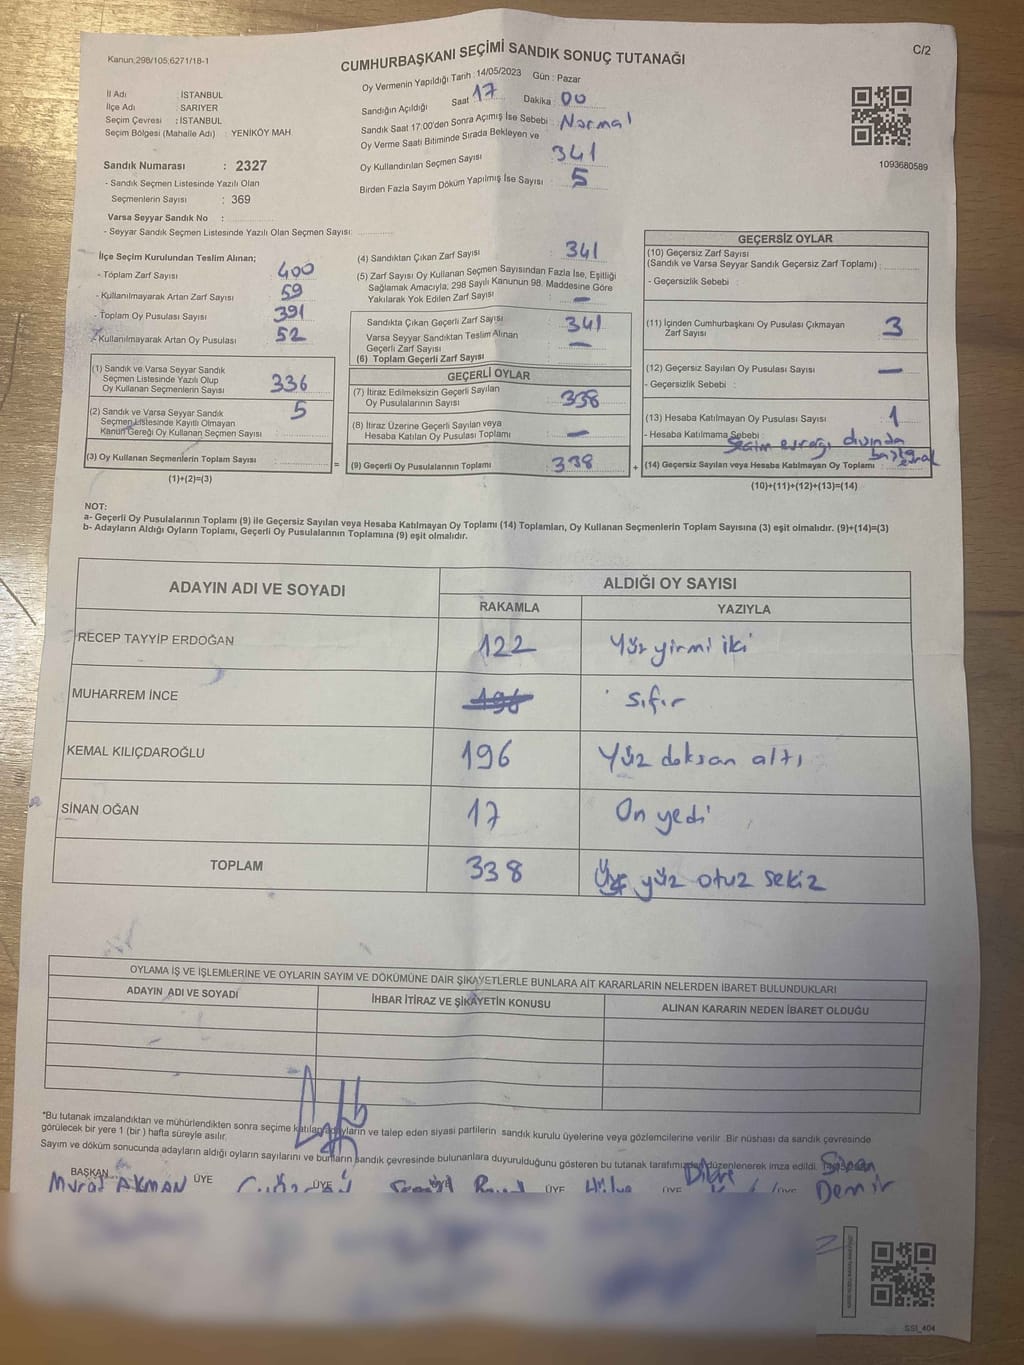 Kanun,298/105,6271/18-1
CUMHURBAŞKANI SEÇİMİ SANDIK SONUÇ TUTANAĞI
C/2
İl Adı : İSTANBUL
İlçe Adı : SARIYER
Seçim Çevresi : İSTANBUL
Seçim Bölgesi (Mahalle Adı) : YENİKÖY MAH.
Oy Vermenin Yapıldığı Tarih : 14/05/2023 Gün : Pazar
Sandığın Açıldığı Saat 17 Dakika : 00
Sandık Saat 17:00'den Sonra Açımış İse Sebebi : Normal
Oy Verme Saati Bitiminde Sırada Bekleyen ve
Oy Kullandırılan Seçmen Sayısı 341
Birden Fazla Sayım Döküm Yapılmış İse Sayısı : 5
1093680589
Sandık Numarası : 2327
- Sandık Seçmen Listesinde Yazılı Olan
Seçmenlerin Sayısı : 369
Varsa Seyyar Sandık No :
- Seyyar Sandık Seçmen Listesinde Yazılı Olan Seçmen Sayısı:
İlçe Seçim Kurulundan Teslim Alınan;
- Toplam Zarf Sayısı 400
- Kullanılmayarak Artan Zarf Sayısı 59
- Toplam Oy Pusulası Sayısı 391
- Kullanılmayarak Artan Oy Pusulası 52
(1) Sandık ve Varsa Seyyar Sandık
Seçmen Listesinde Yazılı Olup
Oy Kullanan Seçmenlerin Sayısı 336
(2) Sandık ve Varsa Seyyar Sandık
Seçmen Listesinde Kayıtlı Olmayan
Kanun Gereği Oy Kullanan Seçmen Sayısı 5
(3) Oy Kullanan Seçmenlerin Toplam Sayısı :
(1)+(2)=(3)
=
(4) Sandıktan Çıkan Zarf Sayısı : 341
(5) Zarf Sayısı Oy Kullanan Seçmen Sayısından Fazla İse, Eşitliği
Sağlamak Amacıyla, 298 Sayılı Kanunun 98. Maddesine Göre
Yakılarak Yok Edilen Zarf Sayısı : —
Sandıkta Çıkan Geçerli Zarf Sayısı : 341
Varsa Seyyar Sandıktan Teslim Alınan
Geçerli Zarf Sayısı : —
(6) Toplam Geçerli Zarf Sayısı
GEÇERLİ OYLAR
(7) İtiraz Edilmeksizin Geçerli Sayılan
Oy Pusulalarının Sayısı : 338
(8) İtiraz Üzerine Geçerli Sayılan veya
Hesaba Katılan Oy Pusulası Toplamı : —
(9) Geçerli Oy Pusulalarının Toplamı : 338
+
GEÇERSİZ OYLAR
(10) Geçersiz Zarf Sayısı
(Sandık ve Varsa Seyyar Sandık Geçersiz Zarf Toplamı) :
- Geçersizlik Sebebi :
(11) İçinden Cumhurbaşkanı Oy Pusulası Çıkmayan
Zarf Sayısı : 3
(12) Geçersiz Sayılan Oy Pusulası Sayısı : —
- Geçersizlik Sebebi :
(13) Hesaba Katılmayan Oy Pusulası Sayısı : 1
- Hesaba Katılmama Sebebi : Seçim evrağı dışında
(14) Geçersiz Sayılan veya Hesaba Katılmayan Oy Toplamı :
(10)+(11)+(12)+(13)=(14)
NOT:
a- Geçerli Oy Pusulalarının Toplamı (9) ile Geçersiz Sayılan veya Hesaba Katılmayan Oy Toplamı (14) Toplamları, Oy Kullanan Seçmenlerin Toplam Sayısına (3) eşit olmalıdır. (9)+(14)=(3)
b- Adayların Aldığı Oyların Toplamı, Geçerli Oy Pusulalarının Toplamına (9) eşit olmalıdır.
ADAYIN ADI VE SOYADI
ALDIĞI OY SAYISI
RAKAMLA YAZIYLA
RECEP TAYYİP ERDOĞAN 122 Yüz yirmi iki
MUHARREM İNCE 196 sıfır
KEMAL KILIÇDAROĞLU 196 Yüz doksan altı
SİNAN OĞAN 17 On yedi
TOPLAM 338 Üç yüz otuz sekiz
OYLAMA İŞ VE İŞLEMLERİNE VE OYLARIN SAYIM VE DÖKÜMÜNE DAİR ŞİKAYETLERLE BUNLARA AİT KARARLARIN NELERDEN İBARET BULUNDUKLARI
ADAYIN ADI VE SOYADI İHBAR İTİRAZ VE ŞİKAYETİN KONUSU ALINAN KARARIN NEDEN İBARET OLDUĞU
*Bu tutanak imzalandıktan ve mühürlendikten sonra seçime katılan adayların ve talep eden siyasi partilerin sandık kurulu üyelerine veya gözlemcilerine verilir. Bir nüshası da sandık çevresinde
görülecek bir yere 1 (bir ) hafta süreyle asılır.
Sayım ve döküm sonucunda adayların aldığı oyların sayılarını ve bunların sandık çevresinde bulunanlara duyurulduğunu gösteren bu tutanak tarafımızdan düzenlenerek imza edildi.
BAŞKAN ÜYE ÜYE ÜYE ÜYE ÜYE ÜYE
Murat AKMAN
Demir
SSI_404